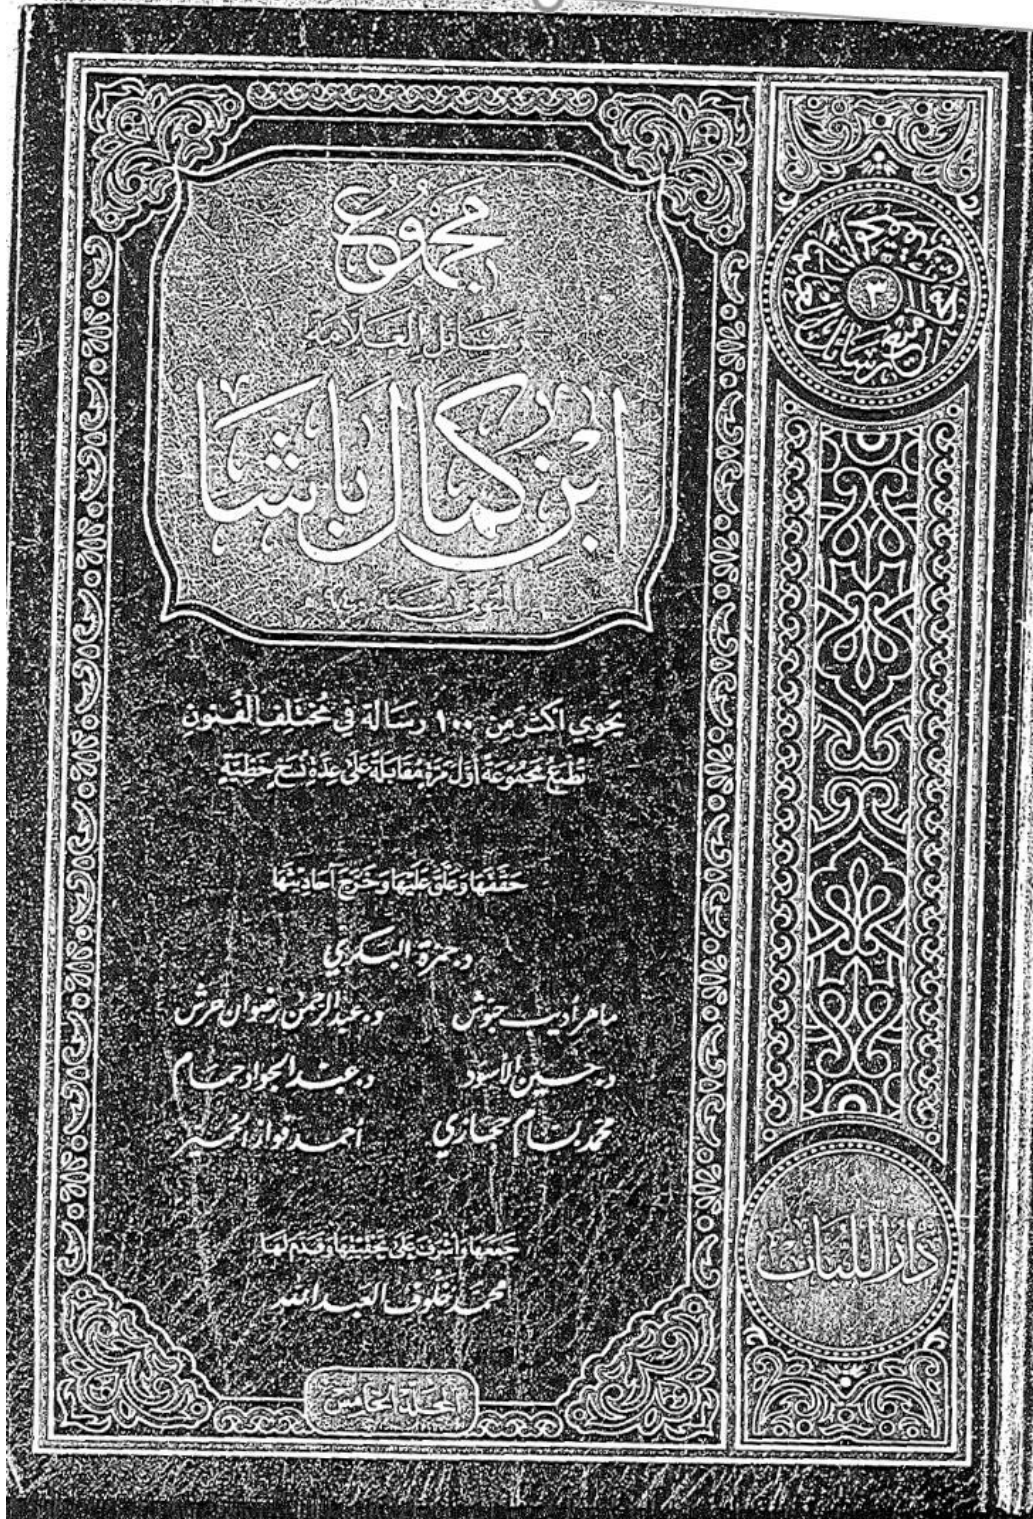 مجموع
رسائل العلامة
ابن كمال باشا
المتوفى سنة ٩٤٠ هـ
يحوي أكثر من ١٠٠ رسالة في مختلف الفنون
تطبع مجموعة أول مرة مقابلة على عدة نسخ خطية
حققها وعلق عليها وخرج أحاديثها
د. حمزة البكري
ماهر أديب حبوش د. عبد الرحمن رضوان حرش
د. حسين الأسود د. عبد الجواد حمام
محمد بسام حجازي أحمد فواز الحمير
جمعها وأشرف على تحقيقها وقدم لها
محمد خلوف العبد الله
المجلد الخامس
٣
دار اللباب